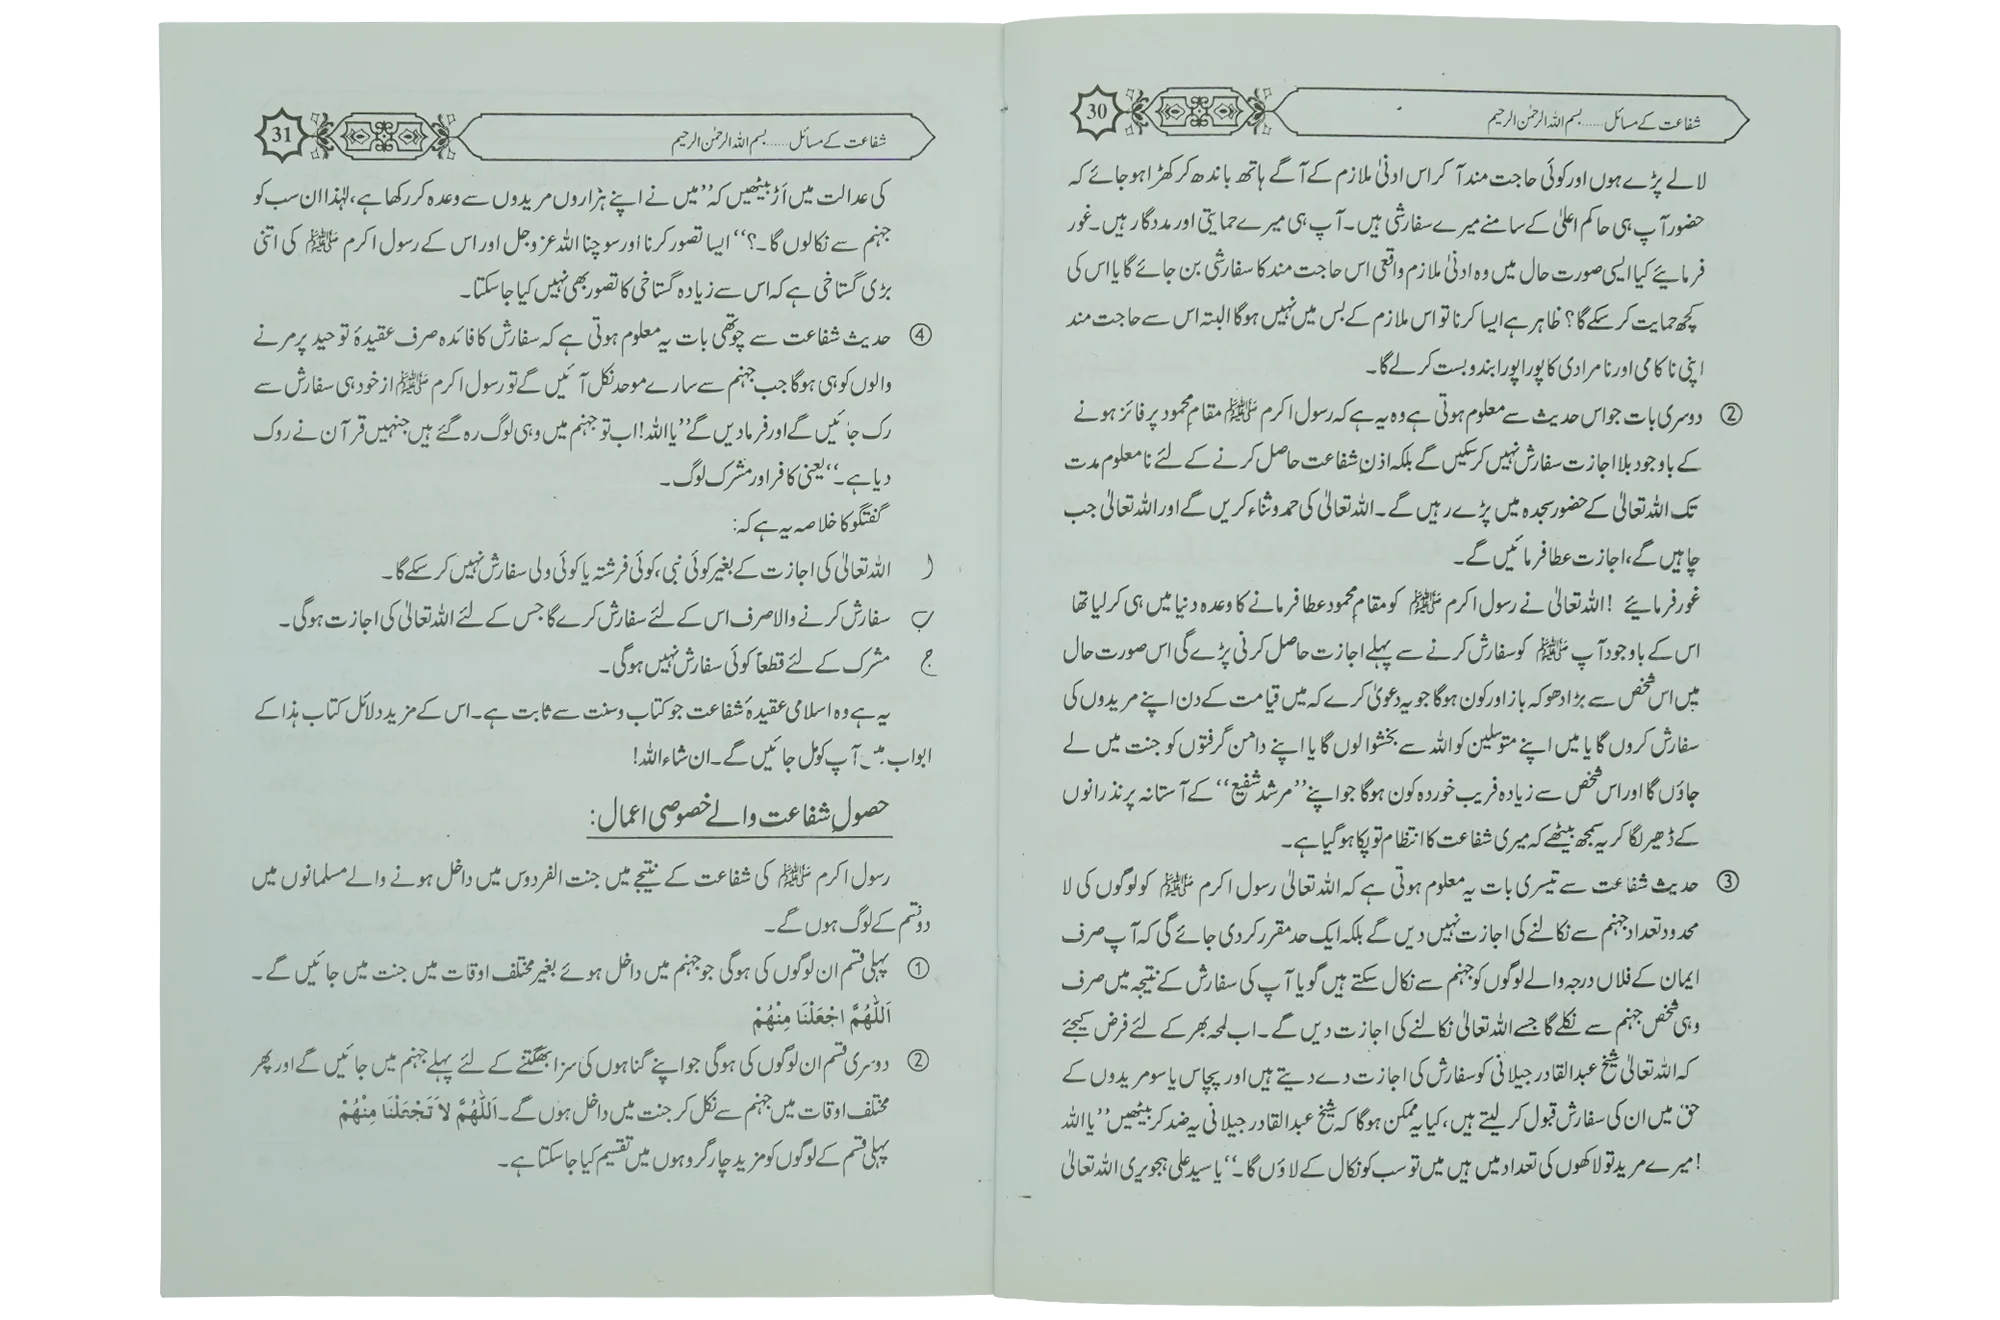 30
شفاعت کے مسائل......بسم اللہ الرحمٰن الرحیم
لالے پڑے ہوں اور کوئی حاجت مند آ کر اس ادنیٰ ملازم کے آگے ہاتھ باندھ کر کھڑا ہو جائے کہ
حضور آپ ہی حاکم اعلیٰ کے سامنے میرے سفارشی ہیں۔ آپ ہی میرے حمایتی اور مددگار ہیں۔ غور
فرمائیے کیا ایسی صورت حال میں وہ ادنیٰ ملازم واقعی اس حاجت مند کا سفارشی بن جائے گا یا اس کی
کچھ حمایت کر سکے گا؟ ظاہر ہے ایسا کرنا تو اس ملازم کے بس میں نہیں ہوگا البتہ اس سے حاجت مند
اپنی ناکامی اور نامرادی کا پورا پورا بندوبست کر لے گا۔
② دوسری بات جو اس حدیث سے معلوم ہوتی ہے وہ یہ ہے کہ رسول اکرم ﷺ مقامِ محمود پر فائز ہونے
کے باوجود بلا اجازت سفارش نہیں کر سکیں گے بلکہ اذنِ شفاعت حاصل کرنے کے لئے نامعلوم مدت
تک اللہ تعالیٰ کے حضور سجدہ میں پڑے رہیں گے۔ اللہ تعالیٰ کی حمد و ثناء کریں گے اور اللہ تعالیٰ جب
چاہیں گے، اجازت عطا فرمائیں گے۔
غور فرمائیے ! اللہ تعالیٰ نے رسول اکرم ﷺ کو مقامِ محمود عطا فرمانے کا وعدہ دنیا میں ہی کر لیا تھا
اس کے باوجود آپ ﷺ کو سفارش کرنے سے پہلے اجازت حاصل کرنی پڑے گی اس صورت حال
میں اس شخص سے بڑا دھوکہ باز اور کون ہوگا جو یہ دعویٰ کرے کہ میں قیامت کے دن اپنے مریدوں کی
سفارش کروں گا یا میں اپنے متوسلین کو اللہ سے بخشوا لوں گا یا اپنے دامن گرفتوں کو جنت میں لے
جاؤں گا اور اس شخص سے زیادہ فریب خوردہ کون ہوگا جو اپنے ’’مرشد شفیع‘‘ کے آستانہ پر نذرانوں
کے ڈھیر لگا کر یہ سمجھ بیٹھے کہ میری شفاعت کا انتظام تو پکا ہو گیا ہے۔
③ حدیث شفاعت سے تیسری بات یہ معلوم ہوتی ہے کہ اللہ تعالیٰ رسول اکرم ﷺ کو لوگوں کی لا
محدود تعداد جہنم سے نکالنے کی اجازت نہیں دیں گے بلکہ ایک حد مقرر کر دی جائے گی کہ آپ صرف
ایمان کے فلاں درجہ والے لوگوں کو جہنم سے نکال سکتے ہیں گویا آپ کی سفارش کے نتیجہ میں صرف
وہی شخص جہنم سے نکلے گا جسے اللہ تعالیٰ نکالنے کی اجازت دیں گے۔ اب لمحہ بھر کے لئے فرض کیجئے
کہ اللہ تعالیٰ شیخ عبدالقادر جیلانی کو سفارش کی اجازت دے دیتے ہیں اور پچاس یا سو مریدوں کے
حق میں ان کی سفارش قبول کر لیتے ہیں، کیا یہ ممکن ہوگا کہ شیخ عبدالقادر جیلانی یہ ضد کر بیٹھیں ’’یا اللہ
! میرے مرید تو لاکھوں کی تعداد میں ہیں میں تو سب کو نکال کے لاؤں گا۔‘‘ یا سید علی ہجویری اللہ تعالیٰ
31
شفاعت کے مسائل......بسم اللہ الرحمٰن الرحیم
کی عدالت میں اَڑ بیٹھیں کہ ’’میں نے اپنے ہزاروں مریدوں سے وعدہ کر رکھا ہے، لہٰذا ان سب کو
جہنم سے نکالوں گا۔؟‘‘ ایسا تصور کرنا اور سوچنا اللہ عزوجل اور اس کے رسول اکرم ﷺ کی اتنی
بڑی گستاخی ہے کہ اس سے زیادہ گستاخی کا تصور بھی نہیں کیا جا سکتا۔
④ حدیث شفاعت سے چوتھی بات یہ معلوم ہوتی ہے کہ سفارش کا فائدہ صرف عقیدۂ توحید پر مرنے
والوں کو ہی ہوگا جب جہنم سے سارے موحد نکل آئیں گے تو رسول اکرم ﷺ از خود ہی سفارش سے
رک جائیں گے اور فرما دیں گے ’’یا اللہ! اب تو جہنم میں وہی لوگ رہ گئے ہیں جنہیں قرآن نے روک
دیا ہے۔‘‘ یعنی کافر اور مشرک لوگ۔
گفتگو کا خلاصہ یہ ہے کہ:
ا اللہ تعالیٰ کی اجازت کے بغیر کوئی نبی، کوئی فرشتہ یا کوئی ولی سفارش نہیں کر سکے گا۔
ب سفارش کرنے والا صرف اس کے لئے سفارش کرے گا جس کے لئے اللہ تعالیٰ کی اجازت ہوگی۔
ج مشرک کے لئے قطعاً کوئی سفارش نہیں ہوگی۔
یہ ہے وہ اسلامی عقیدۂ شفاعت جو کتاب و سنت سے ثابت ہے۔ اس کے مزید دلائل کتاب ہذا کے
ابواب میں آپ کو مل جائیں گے۔ ان شاء اللہ!
حصولِ شفاعت والے خصوصی اعمال:
رسول اکرم ﷺ کی شفاعت کے نتیجے میں جنت الفردوس میں داخل ہونے والے مسلمانوں میں
دو قسم کے لوگ ہوں گے۔
① پہلی قسم ان لوگوں کی ہوگی جو جہنم میں داخل ہوئے بغیر مختلف اوقات میں جنت میں جائیں گے۔
اَللّٰهُمَّ اجْعَلْنَا مِنْهُمْ
② دوسری قسم ان لوگوں کی ہوگی جو اپنے گناہوں کی سزا بھگتنے کے لئے پہلے جہنم میں جائیں گے اور پھر
مختلف اوقات میں جہنم سے نکل کر جنت میں داخل ہوں گے۔ اَللّٰهُمَّ لاَ تَجْعَلْنَا مِنْهُمْ
پہلی قسم کے لوگوں کو مزید چار گروہوں میں تقسیم کیا جا سکتا ہے۔